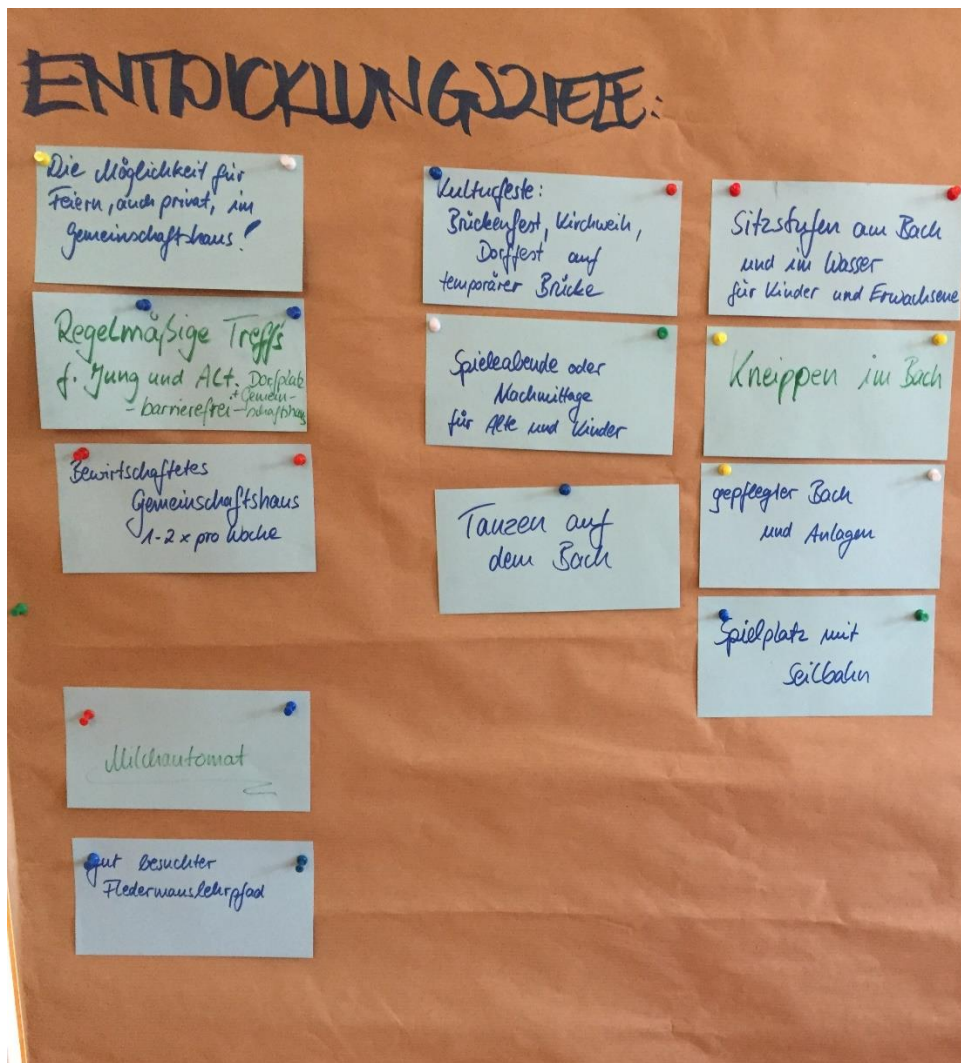 ENTWICKLUNGSZIELE:
Die Möglichkeit für
Feiern, auch privat, im
Gemeinschaftshaus!
Regelmäßige Treffs
f. Jung und Alt. Dorfplatz
+ Gemein-
- barrierefrei - schaftshaus
Bewirtschaftetes
Gemeinschaftshaus
1-2 x pro Woche
Milchautomat
gut besuchter
Fledermauslehrpfad
Kulturfeste:
Brückenfest, Kirchweih,
Dorffest auf
temporärer Brücke
Spieleabende oder
Nachmittage
für Alte und Kinder
Tanzen auf
dem Bach
Sitzstufen am Bach
und im Wasser
für Kinder und Erwachsene
Kneippen im Bach
gepflegter Bach
und Anlagen
Spielplatz mit
Seilbahn